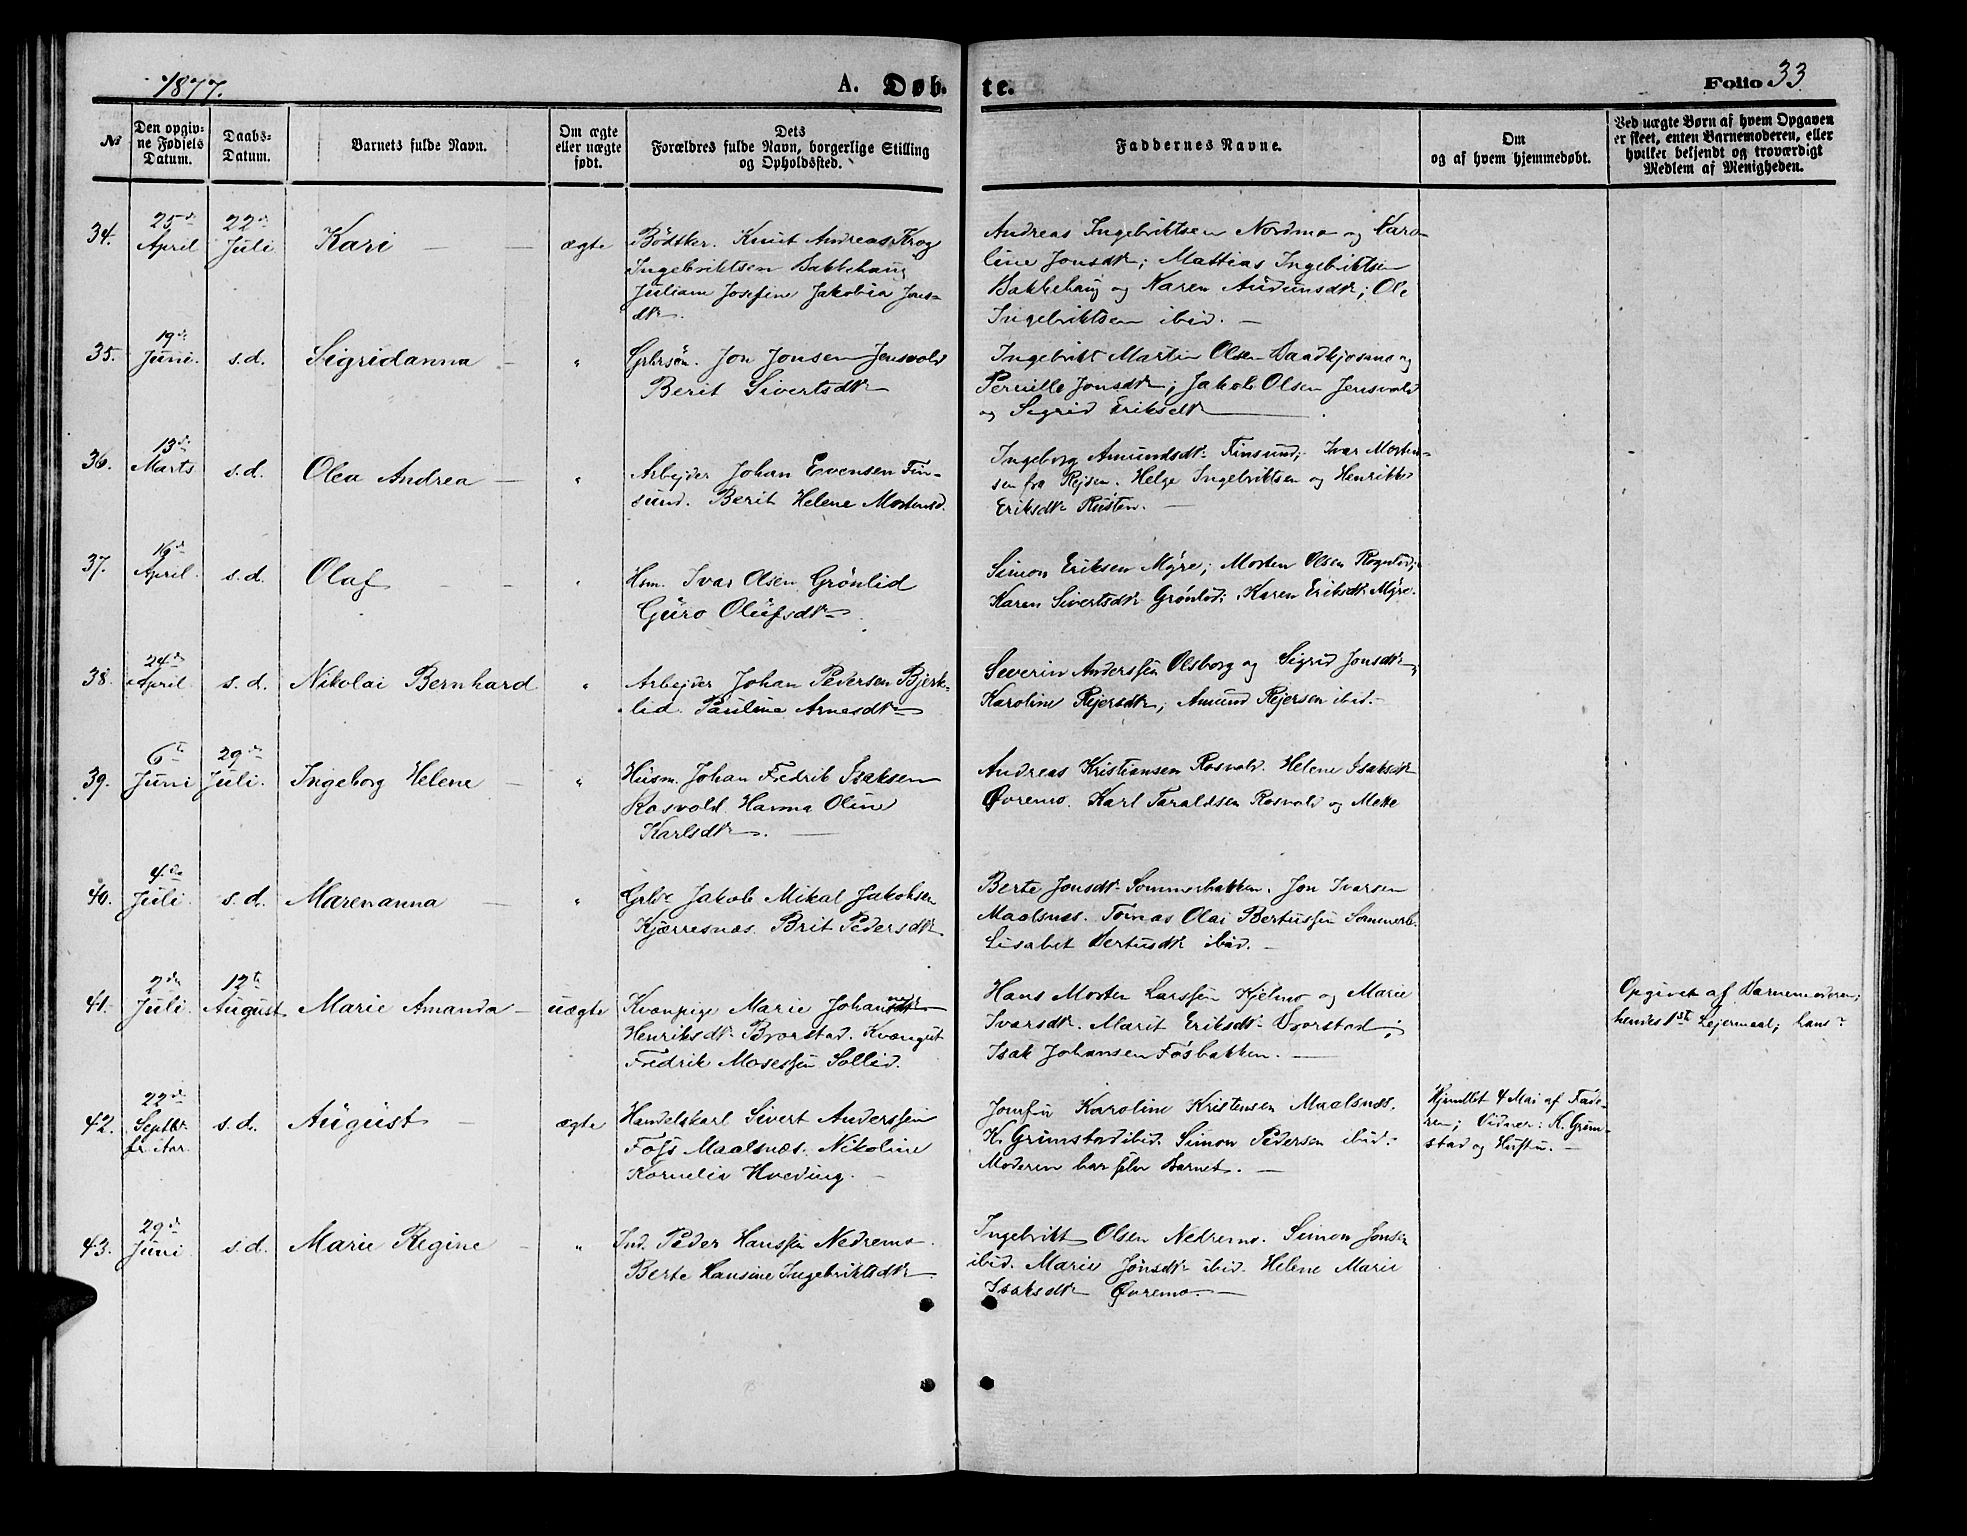 1877.
A. Døb-
te.
Folio 33
№
Den opgiv-
ne Fødsels
Datum.
Daabs-
Datum.
Barnets fulde Navn.
Om ægte
eller uægte
født.
Dets
Forældres fulde Navn, borgerlige Stilling
og Opholdssted.
Faddernes Navne.
Om
og af hvem hjemmedøbt.
Ved uægte Børn af hvem Opgaven
er skeet, enten Barnemoderen, eller
hvilket bekjendt og troværdigt
Medlem af Menigheden.
34.
25de
April
22de
Juli
Kari
ægte
Bödtker. Knut Andreas Krog
Ingebriktsen Bakkehaug
Juliane Josefine Jakobia Jons-
dtr.
Andreas Ingebriktsen Nordmo og Karo-
line Jonsdtr; Mattias Ingebriktsen
Bakkehaug og Karen Audunsdtr; Ole
Ingebriktsen ibid. —
35.
19de
Juni.
s.d.
Sigridanna
"
Jon Jonsen Jensvold
Berit Sivertsdtr
Ingebrikt Martin Olsen og
Pernille Jonsdtr; Jakob Olsen Jensvold
og Sigrid Eriksdtr
36.
13de
Marts
s.d.
Olea Andrea
"
Arbejder Johan Evensen Fin-
sund. Berit Helene Mortensd.
Ingeborg Amundsdtr Finsund; Ivar Morten-
sen fra Rejsen. Helge Ingebriktsen og Henrikke
Eriksdtr Rusten. —
37.
16de
April.
s.d.
Olaf
"
Hm. Ivar Olsen Grönlid
Guro Olufsdtr
Simon Eriksen Myre; Morten Olsen Rognlid;
Karen Sivertsdtr Grönlid; Karen Eriksdtr Myre.
38.
24de
April.
s.d.
Nikolai Bernhard
"
Arbejder Johan Pedersen Bjerk-
lid. Pauline Arnesdtr
Severin Anderssen Olsborg og Sigrid Jonsdtr;
Karoline Rejersdtr; Amund Rejersen ibid.
39.
6te
Juni
29de
Juli.
Ingeborg Helene
"
Husm. Johan Fredrik Isaksen
Rosvold Hanna Oline
Karlsdtr.
Andreas Kristiansen Rosvold. Helene Isaksdtr
Øvremo. Karl Taraldsen Rosvold og Mette
40.
4de
Juli
s.d.
Marenanna
"
Jakob Mikal Jakobsen
Kjærresnæs. Brit Pedersdtr
Berte Jonsdtr Sommerbakken. Jon Ivarsen
Maalsnes. Tomas Olai Bertussen Sommerb.
Lisabet Bertusdtr ibid. —
41.
2den
Juli.
12te
August
Marie Amanda
uægte
Kvænpige Marie Johanne
Henriksdtr Bjorstad. Kvængut
Fredrik Mosessen Sollid.
Hans Morten Larssen Kjelmo og Marie
Ivarsdtr. Marit Eriksdtr Bjorstad;
Isak Johansen Fosbakken. —
Opgivet af Barnemoderen;
hendes 1ste Lejermaal; hans?
42.
22de
Septbr
s.d.
August
ægte
Handelskarl Sivert Anderssen
Foss Maalsnæs. Nikoline
Kornelia Hveding.
Jomfru Karoline Kristensen Maalsnes.
K. Grimstad ibid. Simon Pedersen ibid.
Moderen bar selv Barnet. —
Hjemdbt 4 Mai af Fade-
ren; Vidner: K. Grim-
stad og Hustru. —
43.
29de
Juni
s.d.
Marie Regine
"
Ind. Peder Hanssen Nedremo.
Berte Hansine Ingebriktsdtr
Ingebrikt Olsen Nedremo. Simon Jonsen
ibid. Marie Jonsdtr ibid. Helene Marie
Isaksdtr Øvremo. —